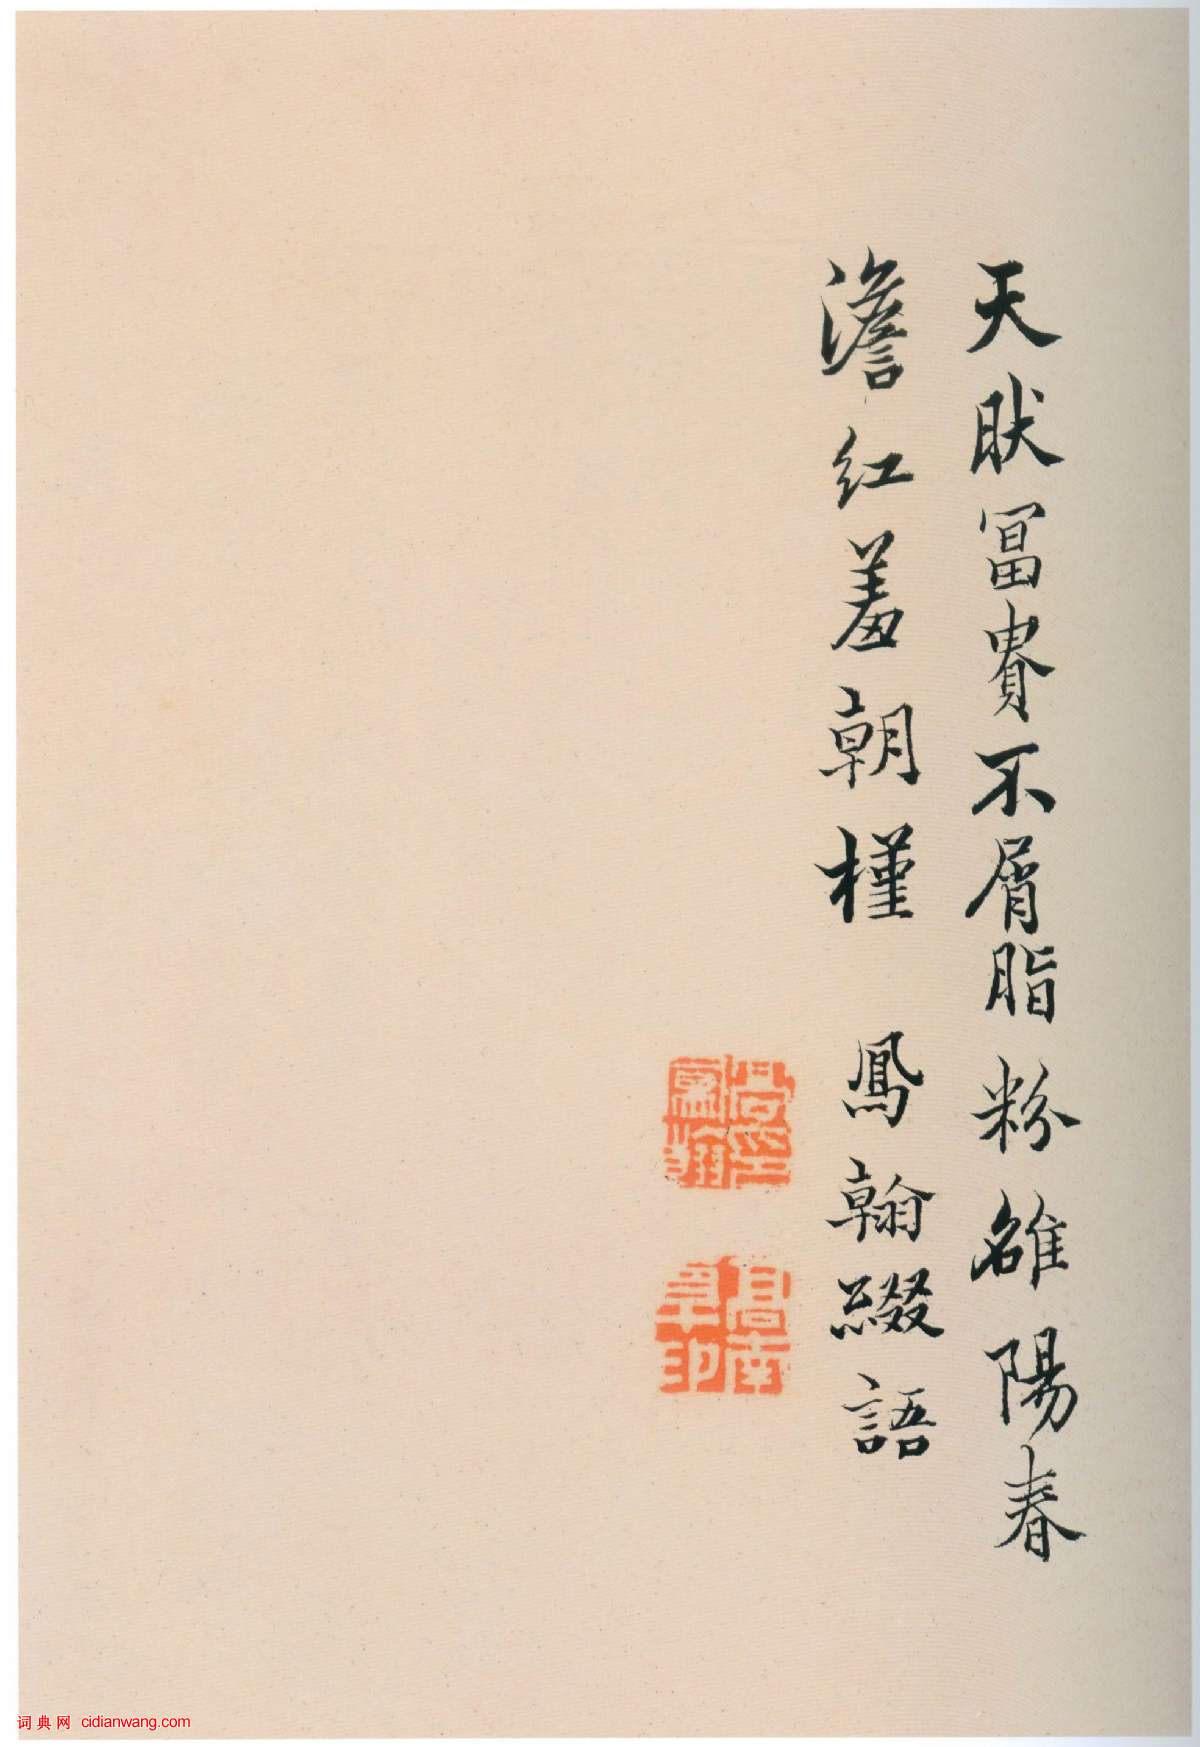 天肰冨貴不屑脂粉雒陽春
澹紅羞朝槿 鳳翰綴語
词典网 cidianwang.com